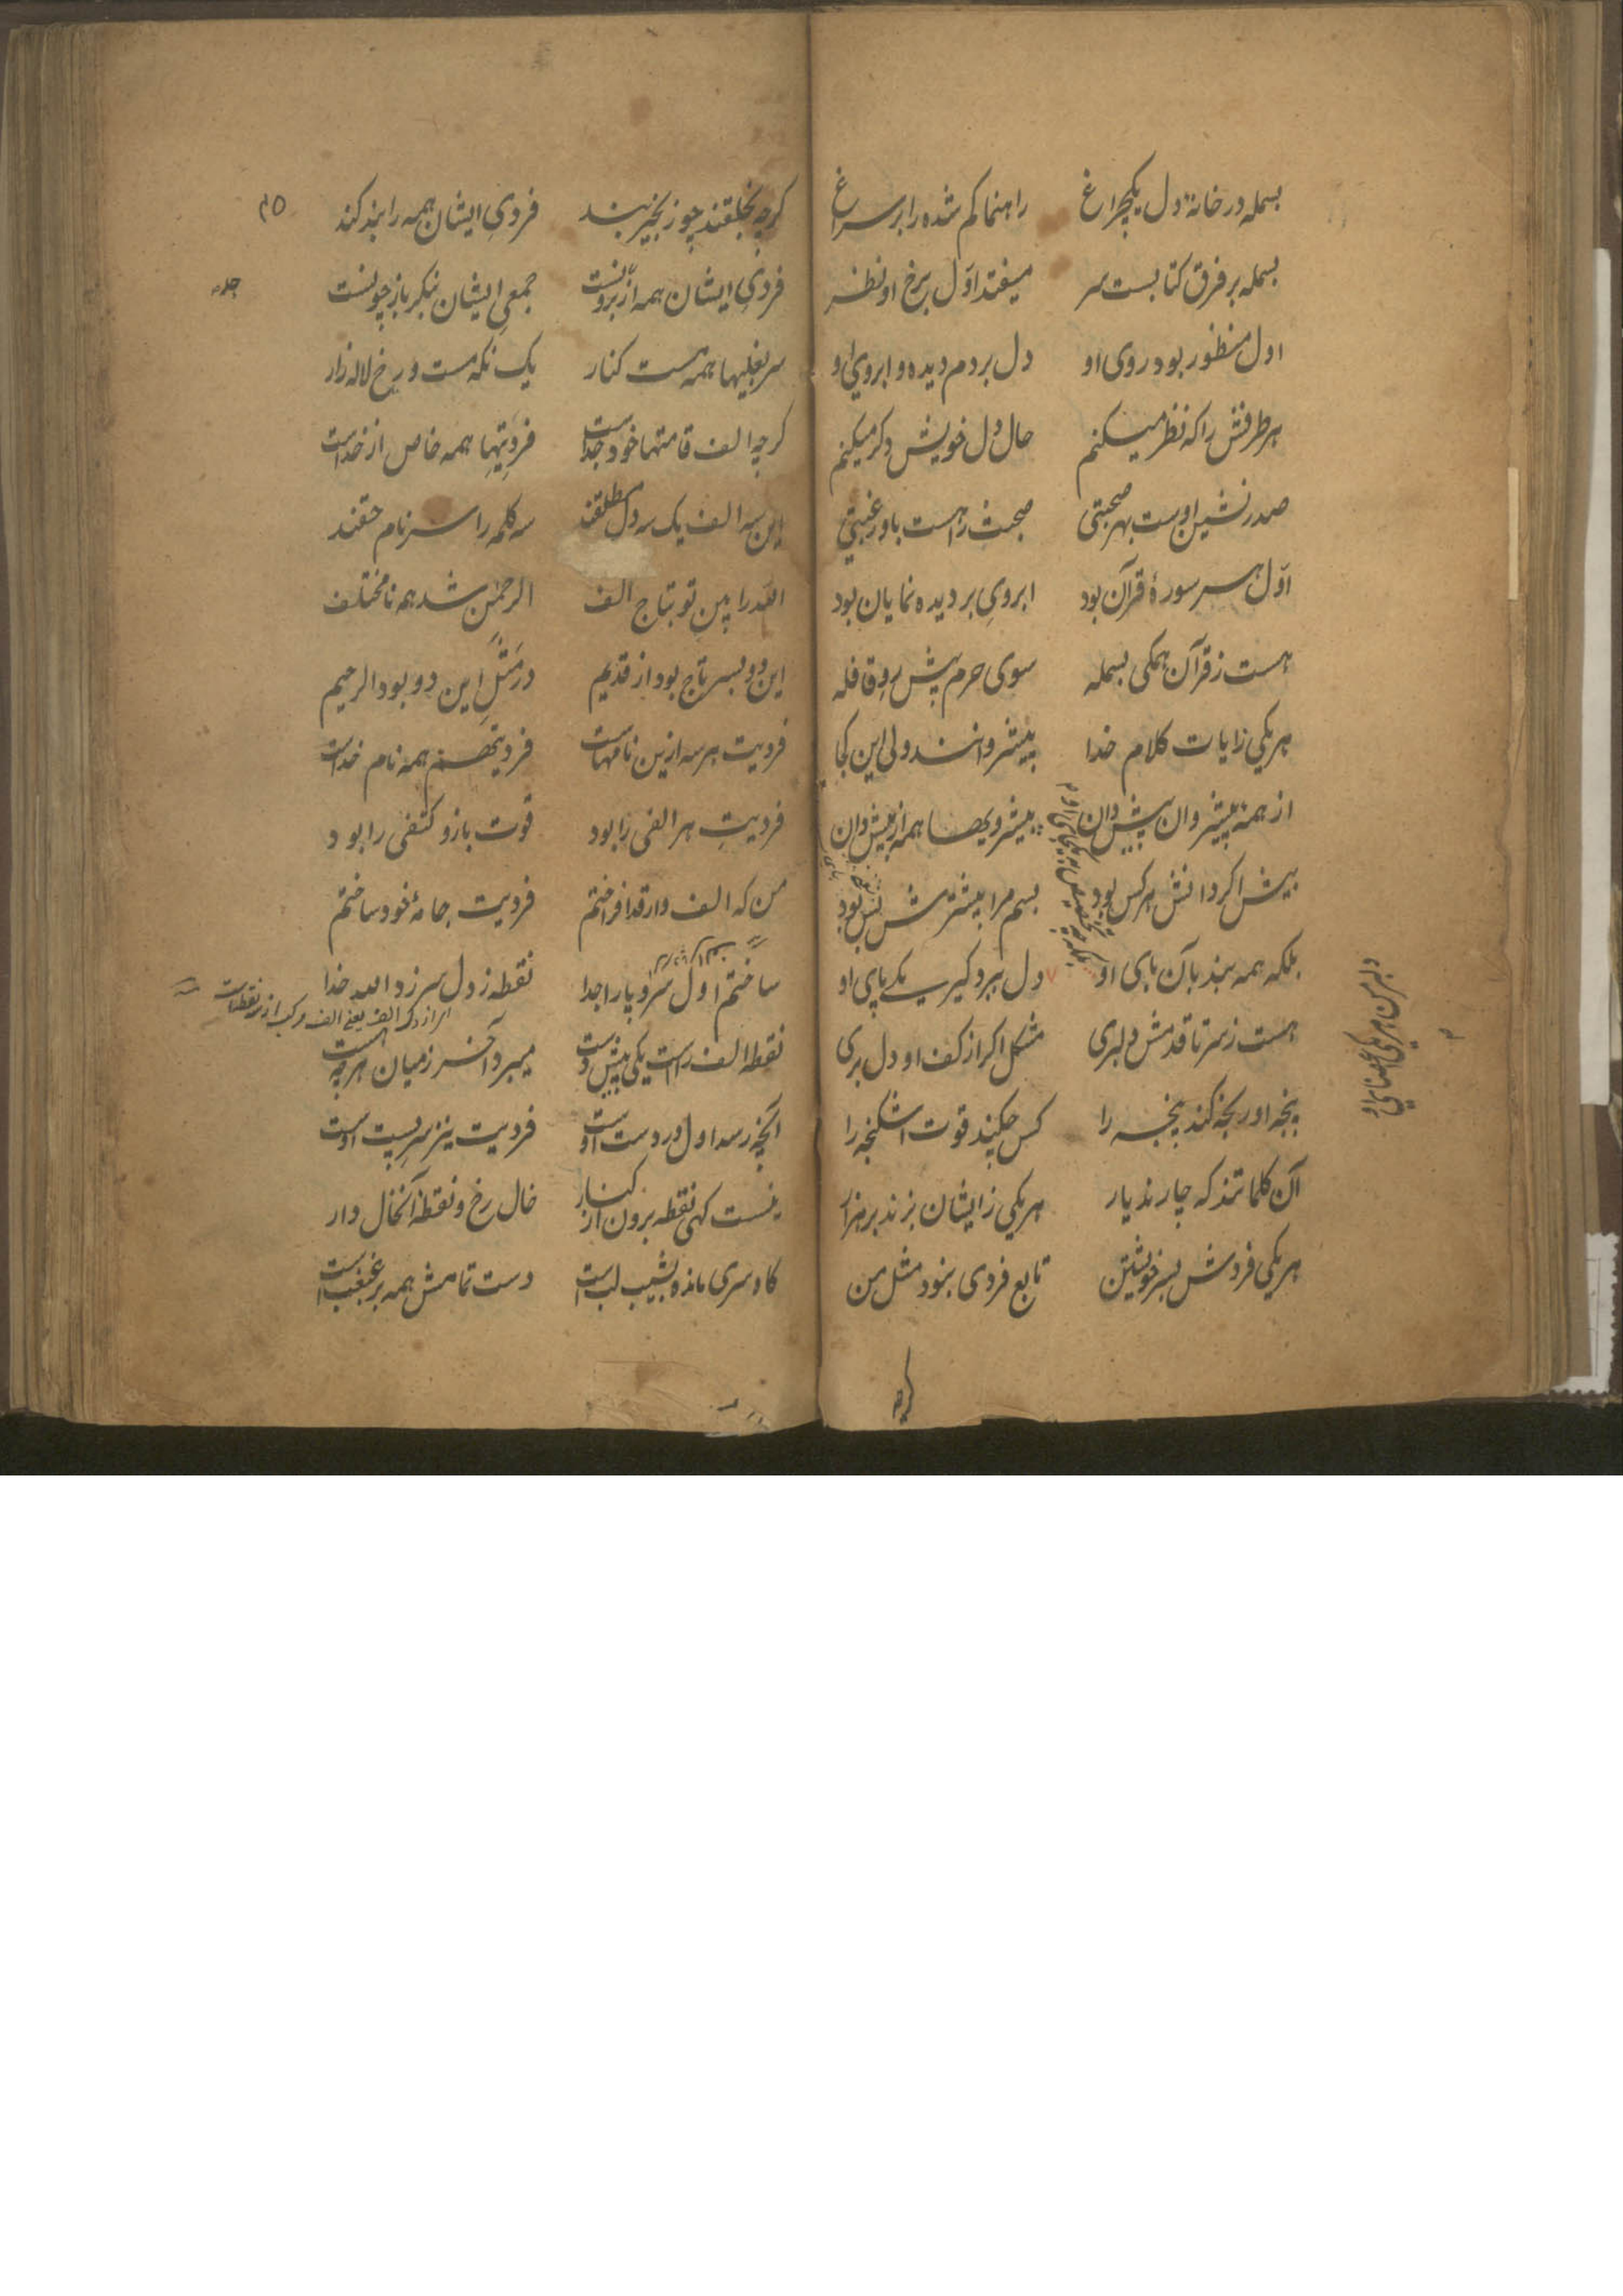 بسمله در خانهٔ دل یکچراغ راهنما کم شده را بر سراغ
بسمله بر فرق کتابست سر میفتد اوّل برخ او نظر
اول منظور بود روی او دل بردم دیده و ابروی او
هر طرفش را که نظر میکنم حال دل خویش دکر میکنم
صدرنشین اوست بهر صحبتی صحبت راهست باو رغبتی
اوّل هر سر سورهٔ قرآن بود ابروی بر دیده نمایان بود
هست ز قرآن همکی بسمله سوی حرم پیش رو قافله
هر یکی زایات کلام خدا پیشروانند ولی این کجا
از همه پیشروان پیش دان پیشرویها همه از پیش دان
بیش اکر دانش هر کس بود بسم مرا بیشترش بس بود
بلکه همه بند بآن بای او دل ببرد کیر یکی پای او
دلبر من هر یکی اعضای او
هست ز سر تا قدمش دلبری مشکل اکر از کف او دل بری
پنجه او رنجه کند پنجه را کس چکند قوت اشکنجه را
آن کلماتند که چارند یار هر یکی زایشان بزند بر هزار
هر یکی فردش بسر خویشتن تابع فردی بنود مثل من
کرچه
کرچه بخلقند چو زنجیر بند فردی ایشان همه را بند کند
فردی ایشان همه از برونست جمعی ایشان بنکر باز چونست
سر بغلیها همه هست کنار یک نکه مست و رخ لاله زار
کرچه الف قامتها خود جداست فردیتها همه خاص از خداست
این سه الف یک سه دل مطلقند سه کلمه را سر نام حقند
اللّه را بین تو بتاج الف الرحمن شد همه نا مختلف
این دو بسر تاج بود از قدیم در مثل این دو بود الرحیم
فردیت هر سه ازین نامهاست فردیتها همه نام خداست
فردیت هر الفی را بود قوت بازو کتفی را بود
من که الف وار قد افراختم فردیت جامهٔ خود ساختم
ساختم اول سر و پا را جدا نقطه ز دل سر زد الله خدا
الف یعنی الف مرکب از نقطهاست
نقطه الف راست یکی پیش دست میبرد آخر ز میان هر چه هست
آنچه رسد اول در دست اوست فردیت نیز سر بست اوست
نیست کهی نقطه برون از کنار خال رخ و نقطه آنخال دار
کاه سری مانده بشیب لب است دست تمامش همه بر غبغب است